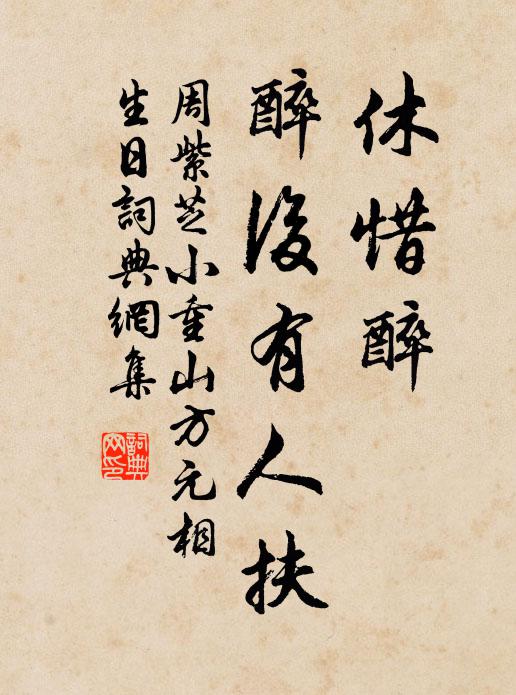 休惜醉
醉後有人扶
周紫芝小重山方元相
生日詞典網集
詞典
网印